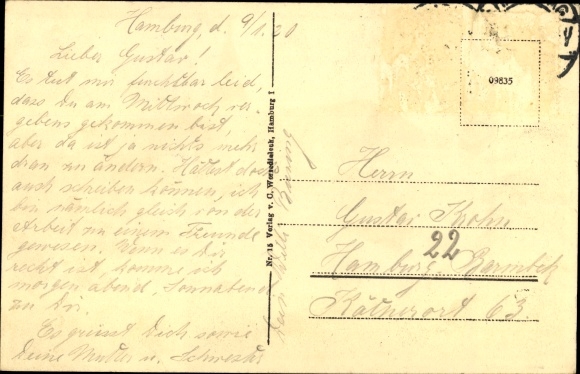 Hamburg, d. 9/1.20
Lieber Gustav!
Es tut mir furchtbar leid,
dass du am Mittwoch ver-
gebens gekommen bist,
aber da ist ja nichts mehr
dran zu ändern. Hättest doch
auch schreiben können, ich
bin nämlich gleich von der
Arbeit zu einem Freunde
gewesen. Wenn es Dir
recht ist, komme ich
morgen abend, Sonnabend
zu Dir.
Es grüsst Dich sowie
Deine Mutter u. Schwester
Dein Willi
Nr. 15 Verlag v. C. Worzedialeck, Hamburg I
09835
Herrn
Gustav Krohn
22
Hamburg Barmbeck
Käthnerort 63.